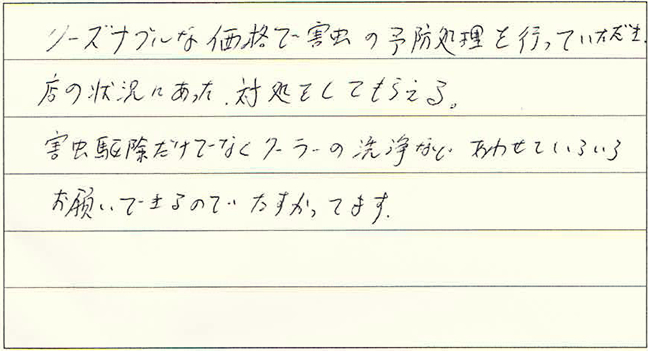 リーズナブルな価格で害虫の予防処理を行っていただき.
店の状況にあった.対処をしてもらえる。
害虫駆除だけでなくクーラーの洗浄など あわせていろいろ
お願いできるのでたすかってます.